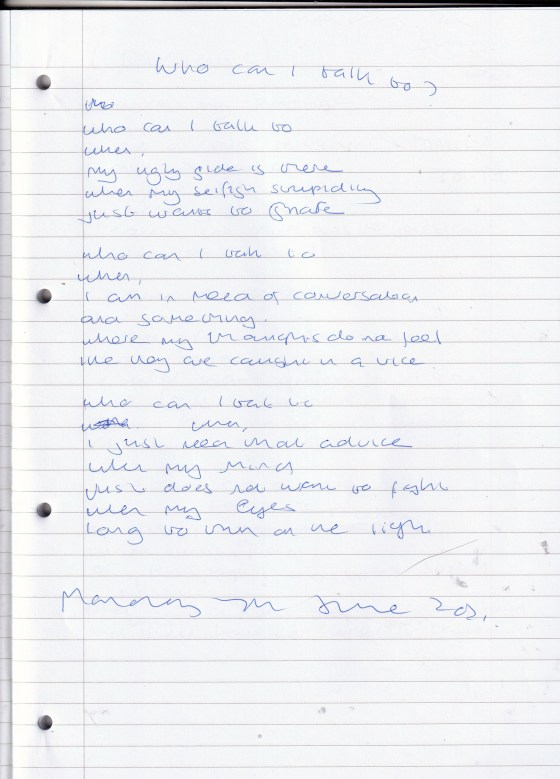 Who can I talk to?
who
who can I talk to
when,
my ugly side is there
when my selfish stupidity
just wants to
who can I talk to
when,
I am in need of conversation
and something
where my thoughts do not feel
like they are caught in a vice
who can I talk to
when,
I just need that advice
when my mind
just does not want to fight
when my eyes
long to turn on the light
Monday June